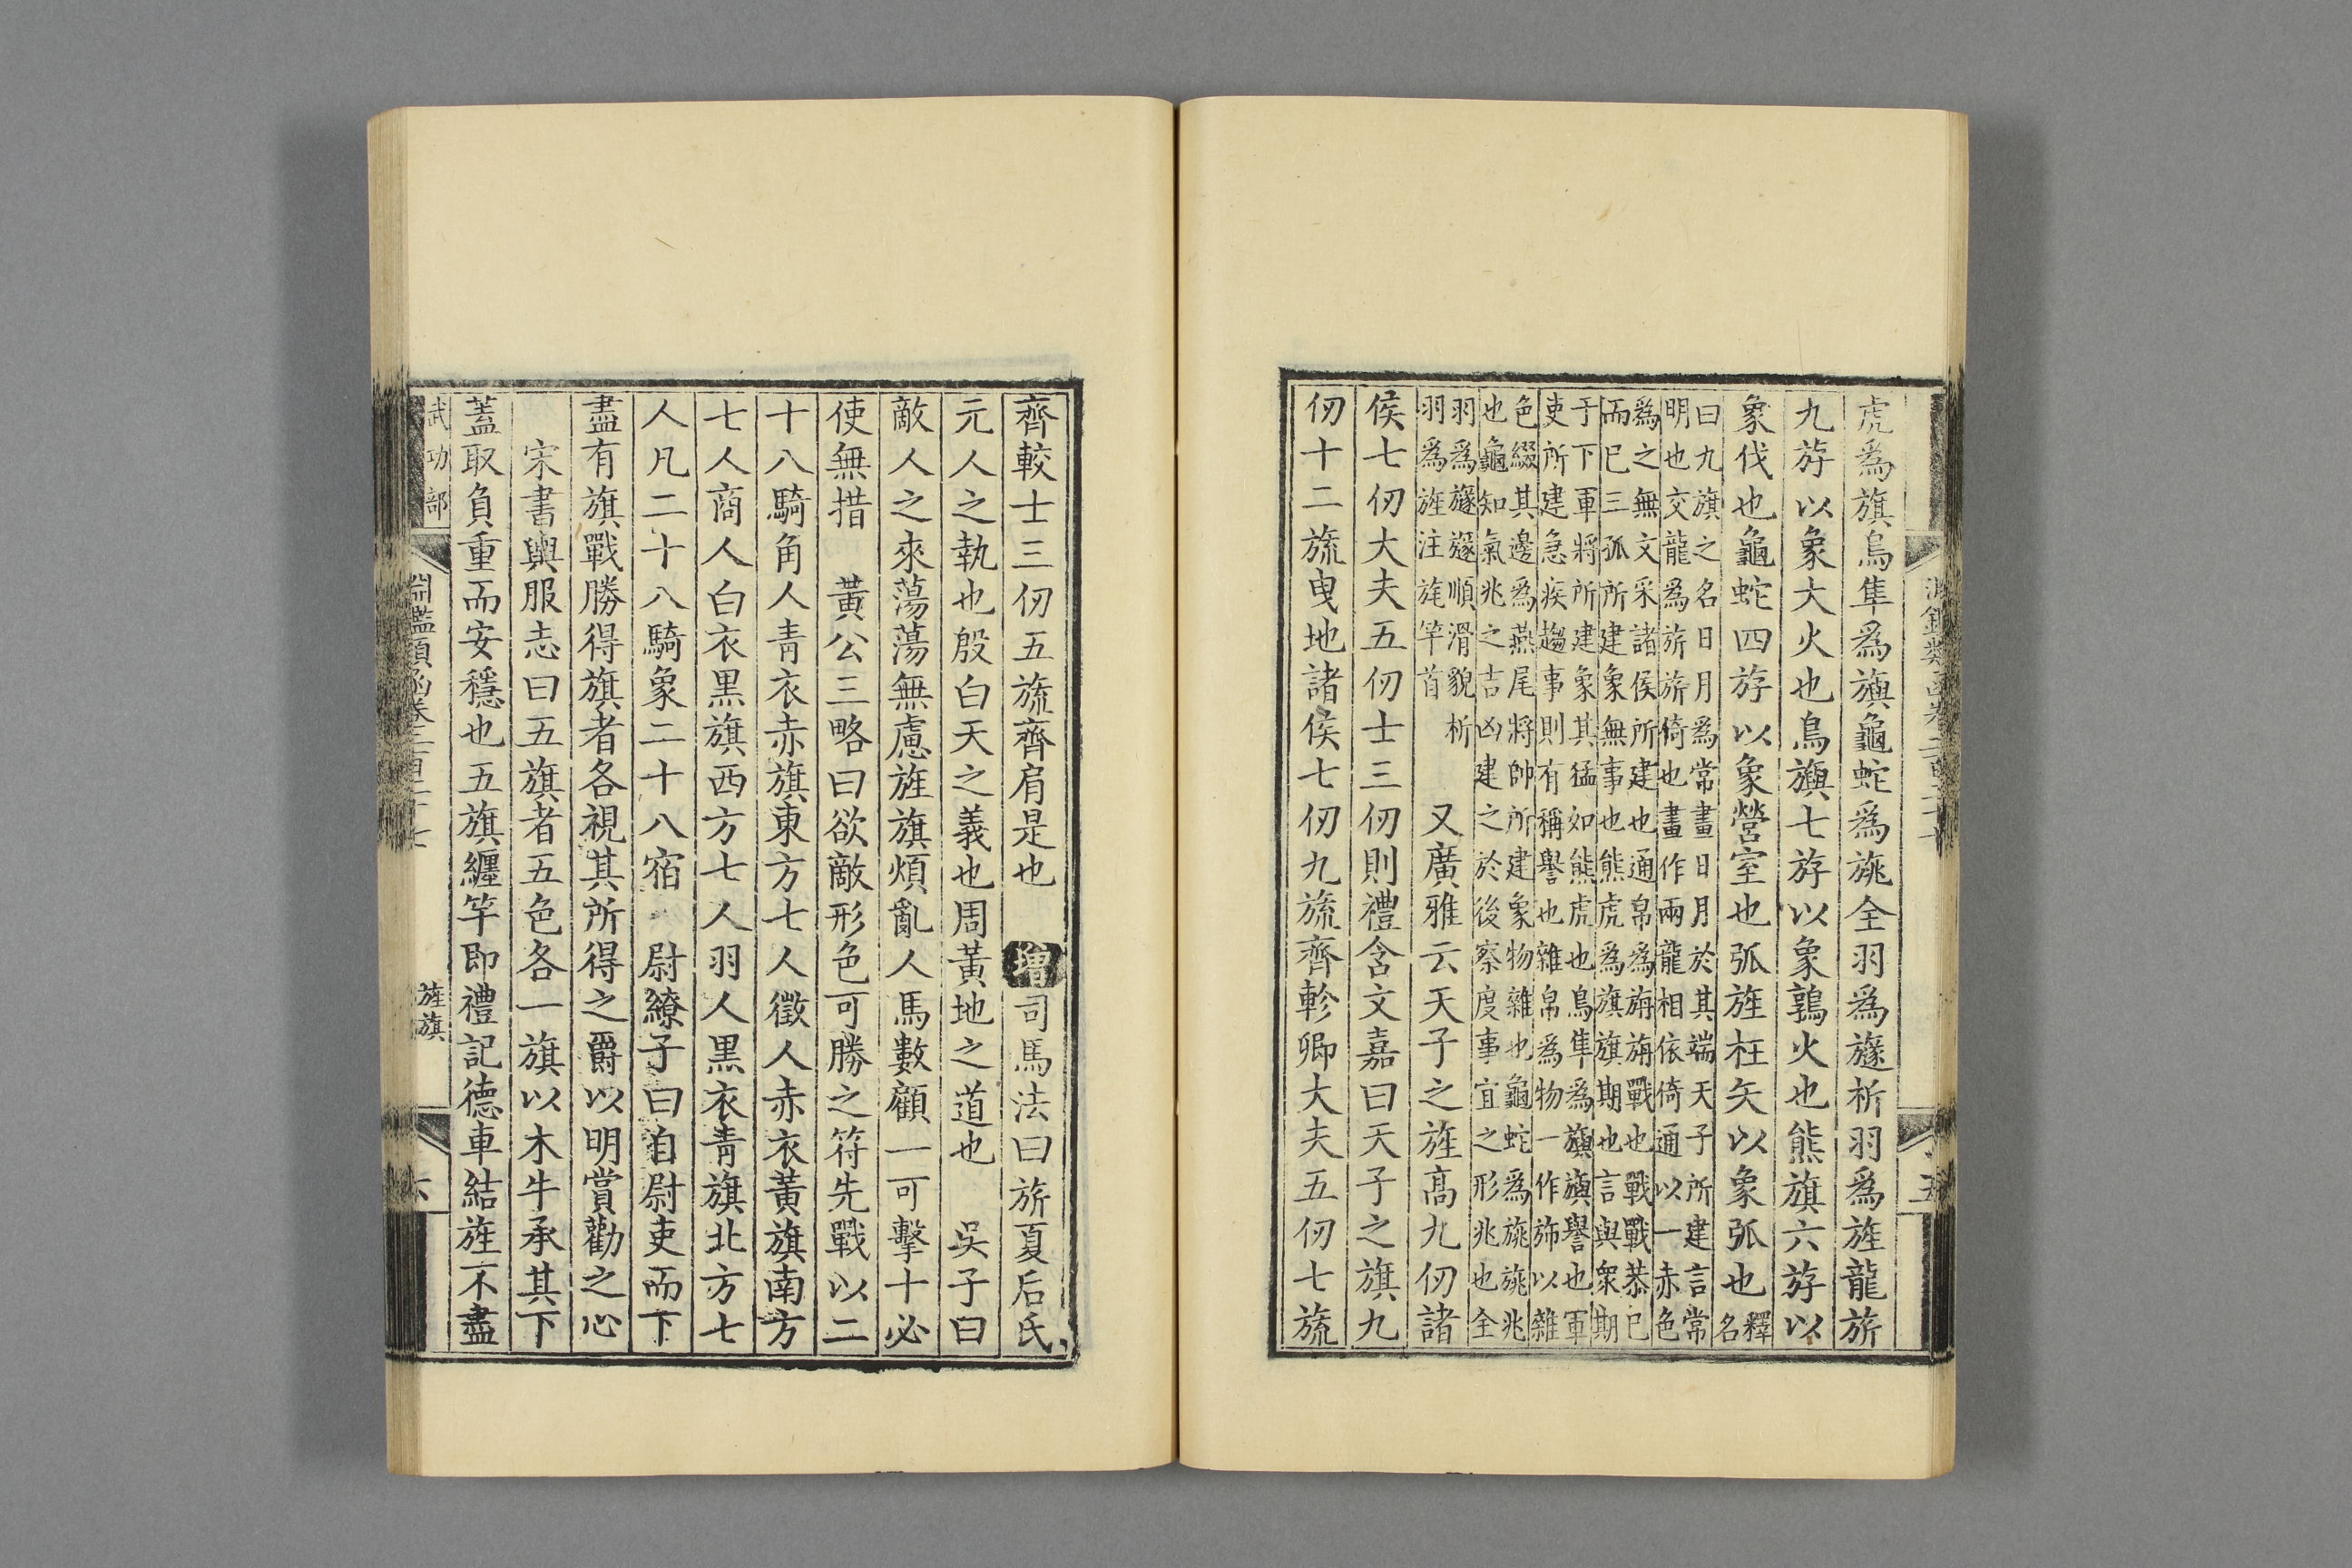 虎爲旗鳥隼爲旟龜蛇爲旐全羽爲旞析羽爲旌龍旂
九斿以象大火也鳥旟七斿以象鶉火也熊旗六斿以
象伐也龜蛇四斿以象營室也弧旌枉矢以象弧也釋
名
曰九旗之名日月爲常畫日月於其端天子所建言常
明也交龍爲旂旂倚也畫作兩龍相依倚通以一赤色
爲之無文采諸侯所建也通帛爲旃旃戰也戰戰恭已
而已三孤所建象無事也熊虎爲旗旗期也言與衆期
于下軍將所建象其猛如熊虎也鳥隼爲旟旟譽也軍
吏所建急疾趨事則有稱譽也雜帛爲物一作旆以雜
色綴其邊爲燕尾將帥所建象物雜也龜蛇爲旐旐兆
也龜知氣兆之吉凶建之於後察度事宜之形兆也全
羽爲旞旞順滑貌析
羽爲旌注旄竿首
又廣雅云天子之旌高九仞諸
侯七仞大夫五仞士三仞則禮含文嘉曰天子之旗九
仞十二旒曳地諸侯七仞九旒齊軫卿大夫五仞七旒
齊較士三仞五旒齊肩是也 增 司馬法曰旂夏后氏
元人之執也殷白天之義也周黃地之道也 吳子曰
敵人之來蕩蕩無慮旌旗煩亂人馬數顧一可擊十必
使無措 黃公三略曰欲敵形色可勝之符先戰以二
十八騎角人青衣赤旗東方七人徵人赤衣黃旗南方
七人商人白衣黑旗西方七人羽人黑衣青旗北方七
人凡二十八騎象二十八宿 尉繚子曰自尉吏而下
盡有旗戰勝得旗者各視其所得之爵以明賞勸之心
宋書輿服志曰五旗者五色各一旗以木牛承其下
蓋取負重而安穩也五旗纏竿即禮記德車結旌不盡
武功部 淵鑑類函卷 旌旗 六